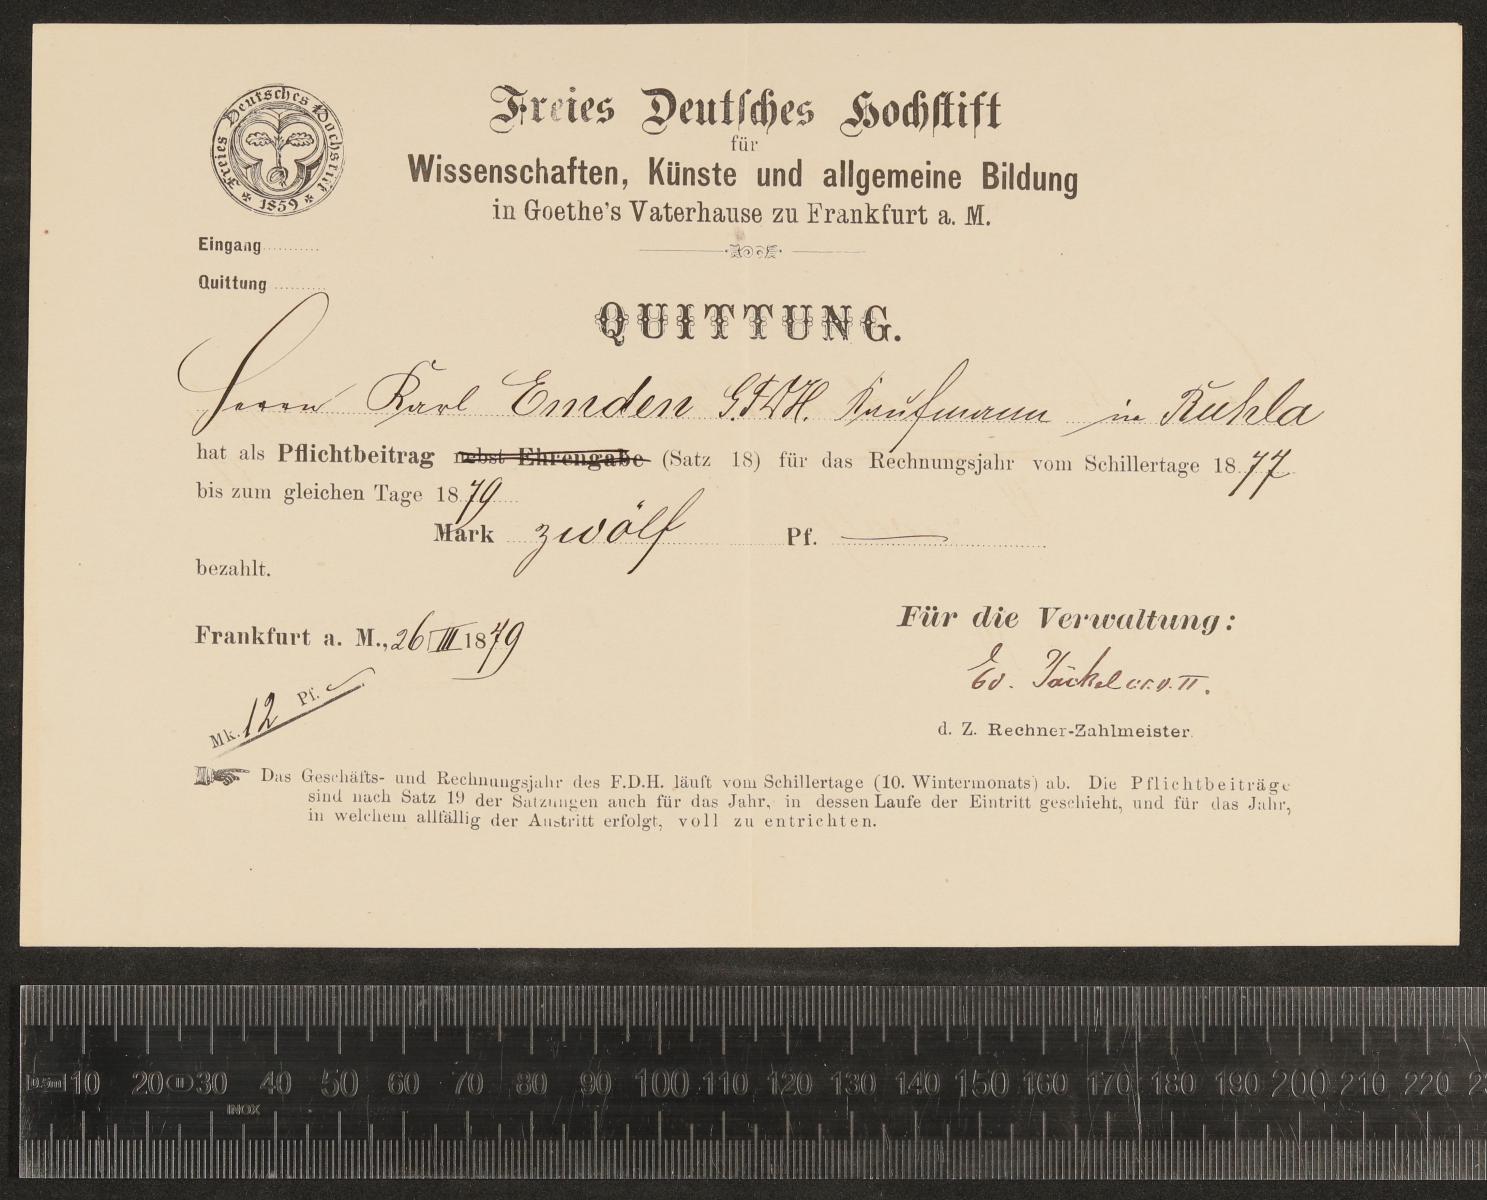 Freies Deutsches Hochstift
* 1859 *
Freies Deutsches Hochstift
für
Wissenschaften, Künste und allgemeine Bildung
in Goethe's Vaterhause zu Frankfurt a. M.
Eingang
Quittung
QUITTUNG.
Herrn Karl Emden G.F.D.H. Kaufmann in Ruhla
hat als Pflichtbeitrag nebst Ehrengabe (Satz 18) für das Rechnungsjahr vom Schillertage 1877
bis zum gleichen Tage 1879
Mark zwölf Pf. —
bezahlt.
Frankfurt a. M., 26 III 1879
Für die Verwaltung:
Ed. Jäckel
d. Z. Rechner-Zahlmeister.
Mk. 12 Pf.
Das Geschäfts- und Rechnungsjahr des F.D.H. läuft vom Schillertage (10. Wintermonats) ab. Die Pflichtbeiträge
sind nach Satz 19 der Satzungen auch für das Jahr, in dessen Laufe der Eintritt geschieht, und für das Jahr,
in welchem allfällig der Austritt erfolgt, voll zu entrichten.
0.5m 10 20 30 40 50 60 70 80 90 100 110 120 130 140 150 160 170 180 190 200 210 220
INOX